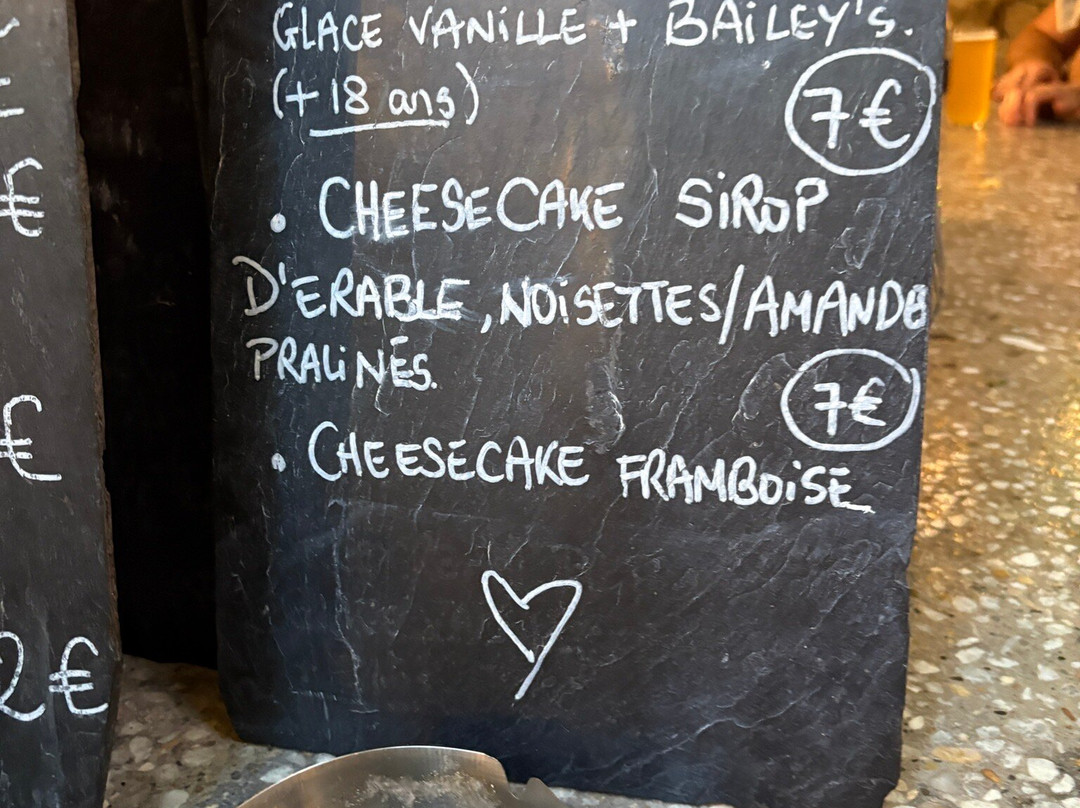 GLACE VANILLE + BAILEY's.
(+ 18 ans)
7€
• CHEESECAKE SIROP
D'ERABLE, NOISETTES/AMANDES
PRALINÉS.
7€
• CHEESECAKE FRAMBOISE
€
€
2€